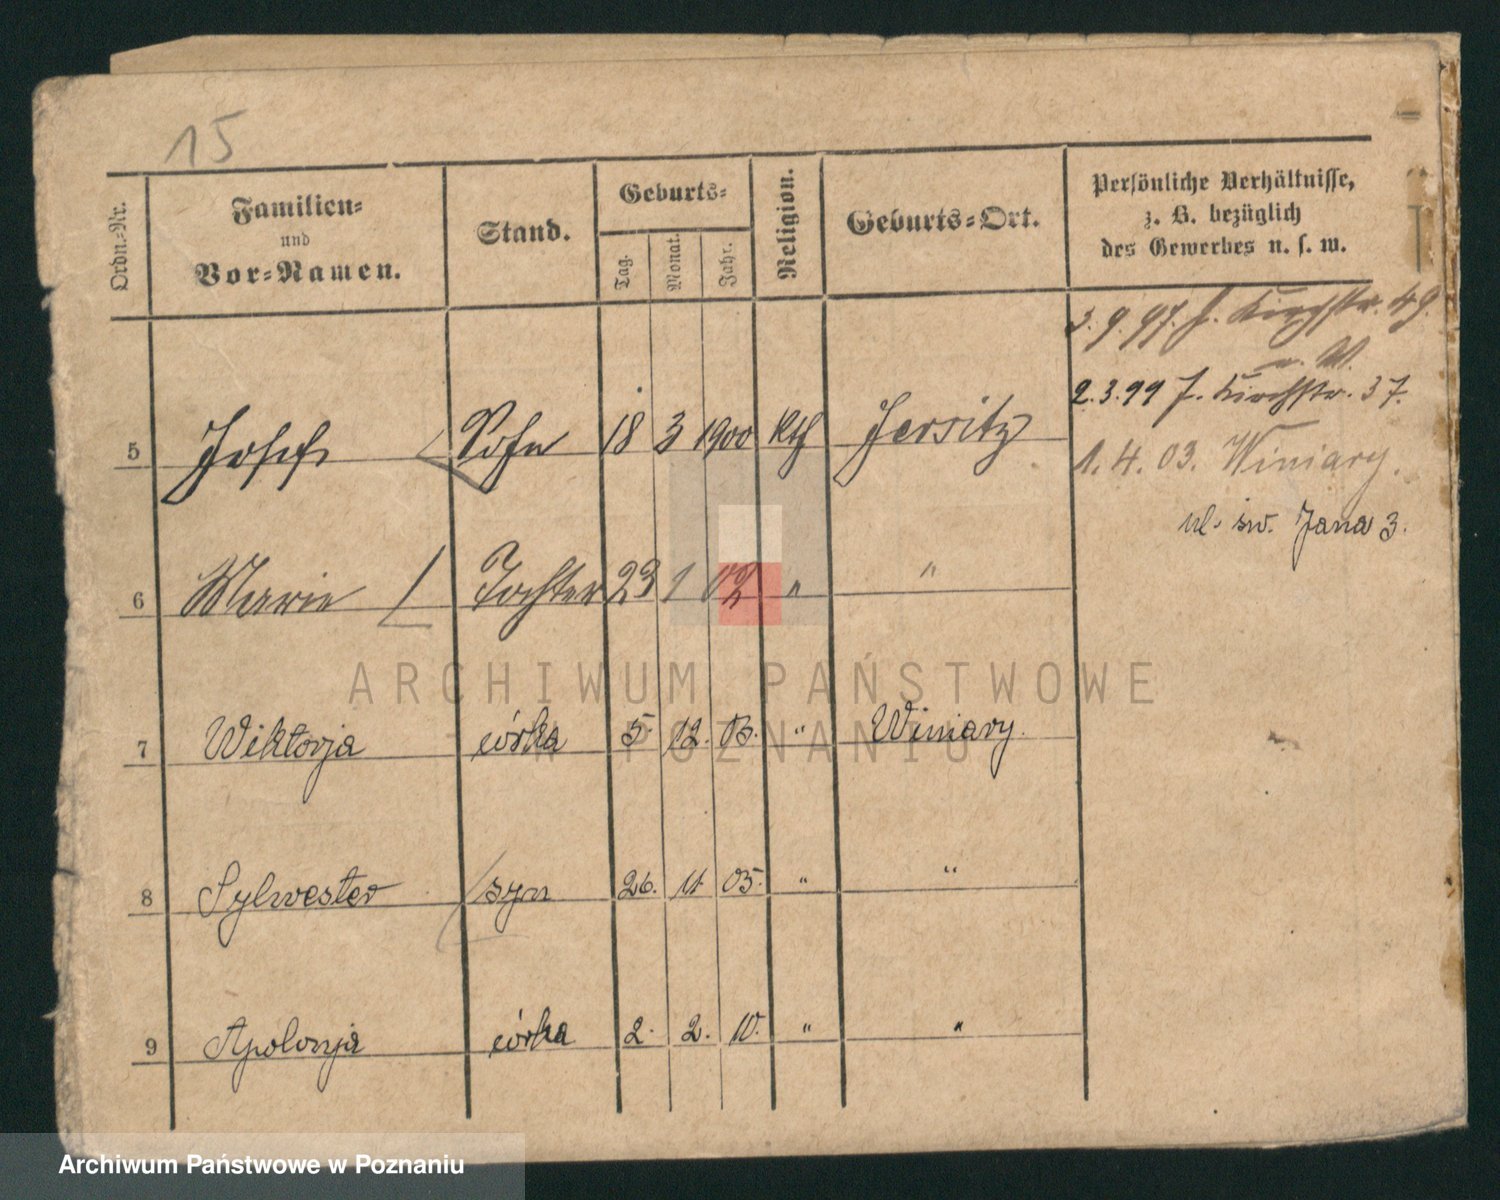 15
Ordn.-Nr.
Familien- und Vor-Namen.
Stand.
Geburts-
Tag. Monat. Jahr.
Religion.
Geburts-Ort.
Persönliche Verhältnisse,
z. B. bezüglich
des Gewerbes u. s. w.
3.9.97. J. Kirchstr. 49.
a. W.
2.3.99 J. Kirchstr. 37.
5 Josef Sohn 18 3 1900 kth Jersitz
1.4.03. Winiary.
ul. św. Jana 3.
6 Marie Tochter 23 1 02 " "
ARCHIWUM PAŃSTWOWE
W POZNANIU
7 Wiktorja córka 5. 12. 03. " Winiary.
8 Sylwester syn 26. 11. 05. " "
9 Apolonja córka 2. 2. 10. " "
Archiwum Państwowe w Poznaniu